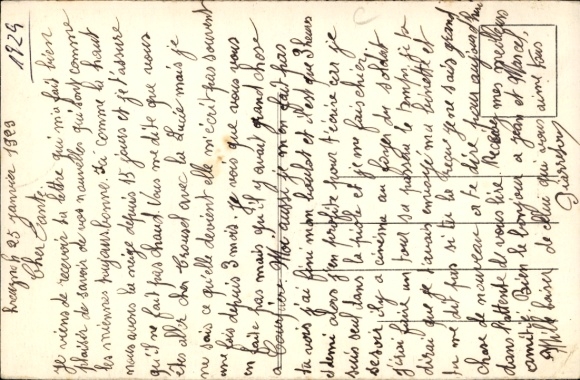 1929
25 janvier 1929
Cher Tante
je viens de recevoir ta lettre qui m'a fait bien
plaisir de savoir de vos nouvelles qui sont comme
les miennes toujours bonne. Ici comme là haut
nous avons la neige depuis 15 jours et je t'assure
qu'il ne fait pas chaud Vous me dite que vous
êtes allé chez avec la Lucie mais je
ne sais ce qu'elle devient elle m'ecrit pas souvent
une fois depuis 3 mois. Je vois que vous vous
en faite pas mais qu'il y avait grand chose
a Moi aussi je m'en fait pas
tu vois j'ai fini mon boulot et il est que 3 heures
et demi alors j'en profite pour t'écrire car je
suis seul dans la piole et je me fais chier
ce soir il y a cinema au foyer du soldat
j'irai faire un tour sa passera le temps, je te
dirai que je t'avais envoyé ma binette et
tu me dit pas si tu la reçu je ne sais grand
chose de nouveau a te dire pour aujourd'hui
dans l'attente de vous lire. Recevez mes meilleurs
Bien le bonjour a Jean et Marcel
Mille baisers de celui qui vous aime